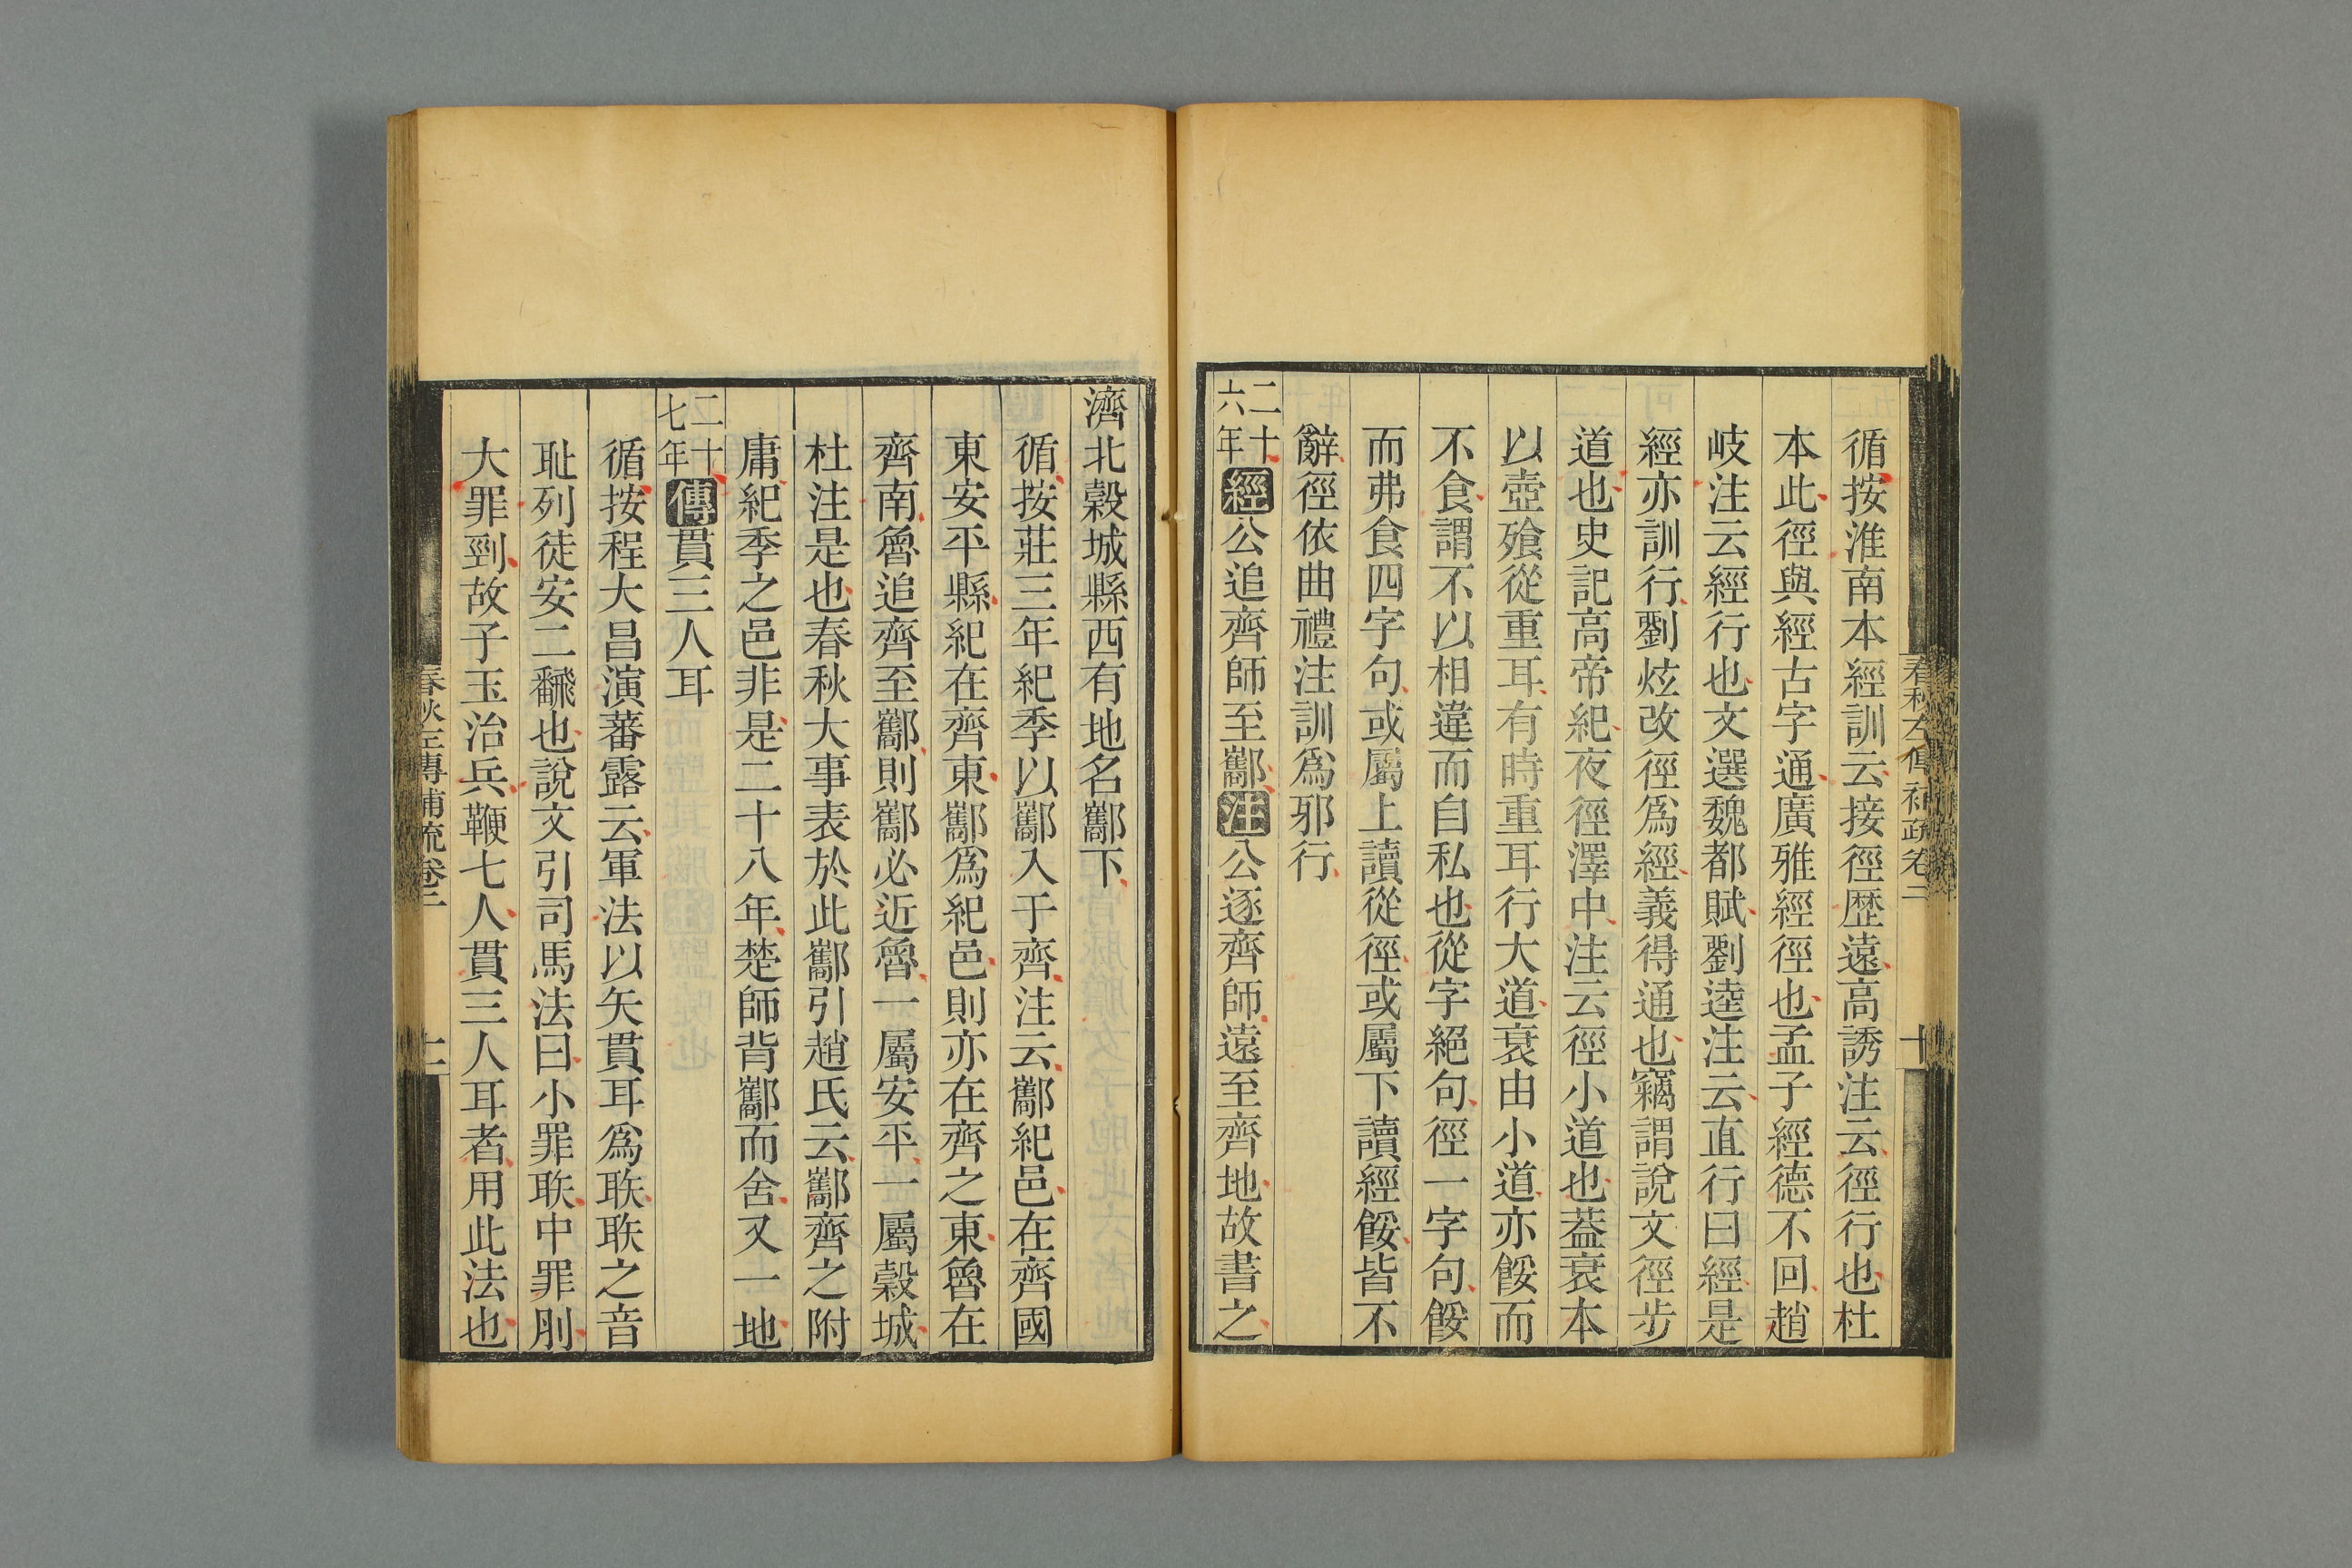 春秋左傳補疏卷二
十
循按淮南本經訓云接徑歷遠高誘注云徑行也杜
本此徑與經古字通廣雅經徑也孟子經德不回趙
岐注云經行也文選魏都賦劉逵注云直行曰經是
經亦訓行劉炫改徑爲經義得通也竊謂說文徑步
道也史記高帝紀夜徑澤中注云徑小道也葢衰本
以壺飱從重耳有時重耳行大道衰由小道亦餒而
不食謂不以相違而自私也從字絕句徑一字句餒
而弗食四字句或屬上讀從徑或屬下讀經餒皆不
辭徑依曲禮注訓爲邪行
二十六年經公追齊師至酅注公逐齊師遠至齊地故書之
濟北榖城縣西有地名酅下
循按莊三年紀季以酅入于齊注云酅紀邑在齊國
東安平縣紀在齊東酅爲紀邑則亦在齊之東魯在
齊南魯追齊至酅則酅必近魯一屬安平一屬榖城
杜注是也春秋大事表於此酅引趙氏云酅齊之附
庸紀季之邑非是二十八年楚師背酅而舍又一地
二十七年傳貫三人耳
循按程大昌演蕃露云軍法以矢貫耳爲聅聅之音
耻列徒安二飜也說文引司馬法曰小罪聅中罪刖
大罪剄故子玉治兵鞭七人貫三人耳者用此法也
春秋左傳補疏卷二
十一